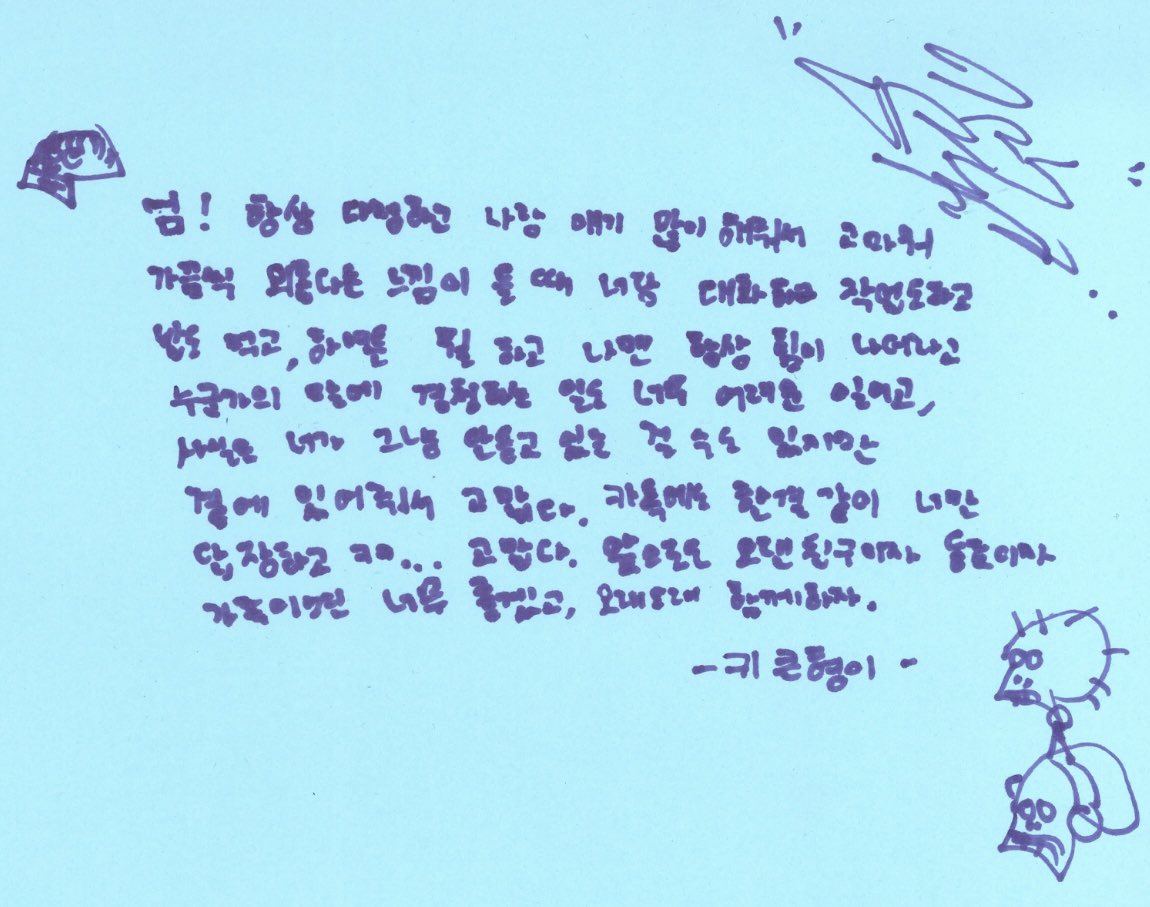 염! 항상 다정하고 나랑 얘기 많이 해줘서 고마워
가끔씩 외롭다는 느낌이 들 때 너랑 대화하고 작업도하고
밥도 먹고, 하여튼 뭘 하고 나면 항상 힘이 나더라고
누군가의 말에 경청하는 일도 너무 어려운 일이고,
사실은 너가 그냥 안듣고 있는 걸 수도 있지만
곁에 있어줘서 고맙다. 카톡에는 한결같이 너만
답장하고 ㅋㅋ... 고맙다. 앞으로도 오랜친구이자 동료이자
가족이 너무 즐겁고, 오래오래 함께하자.
- 키 큰 형이 -